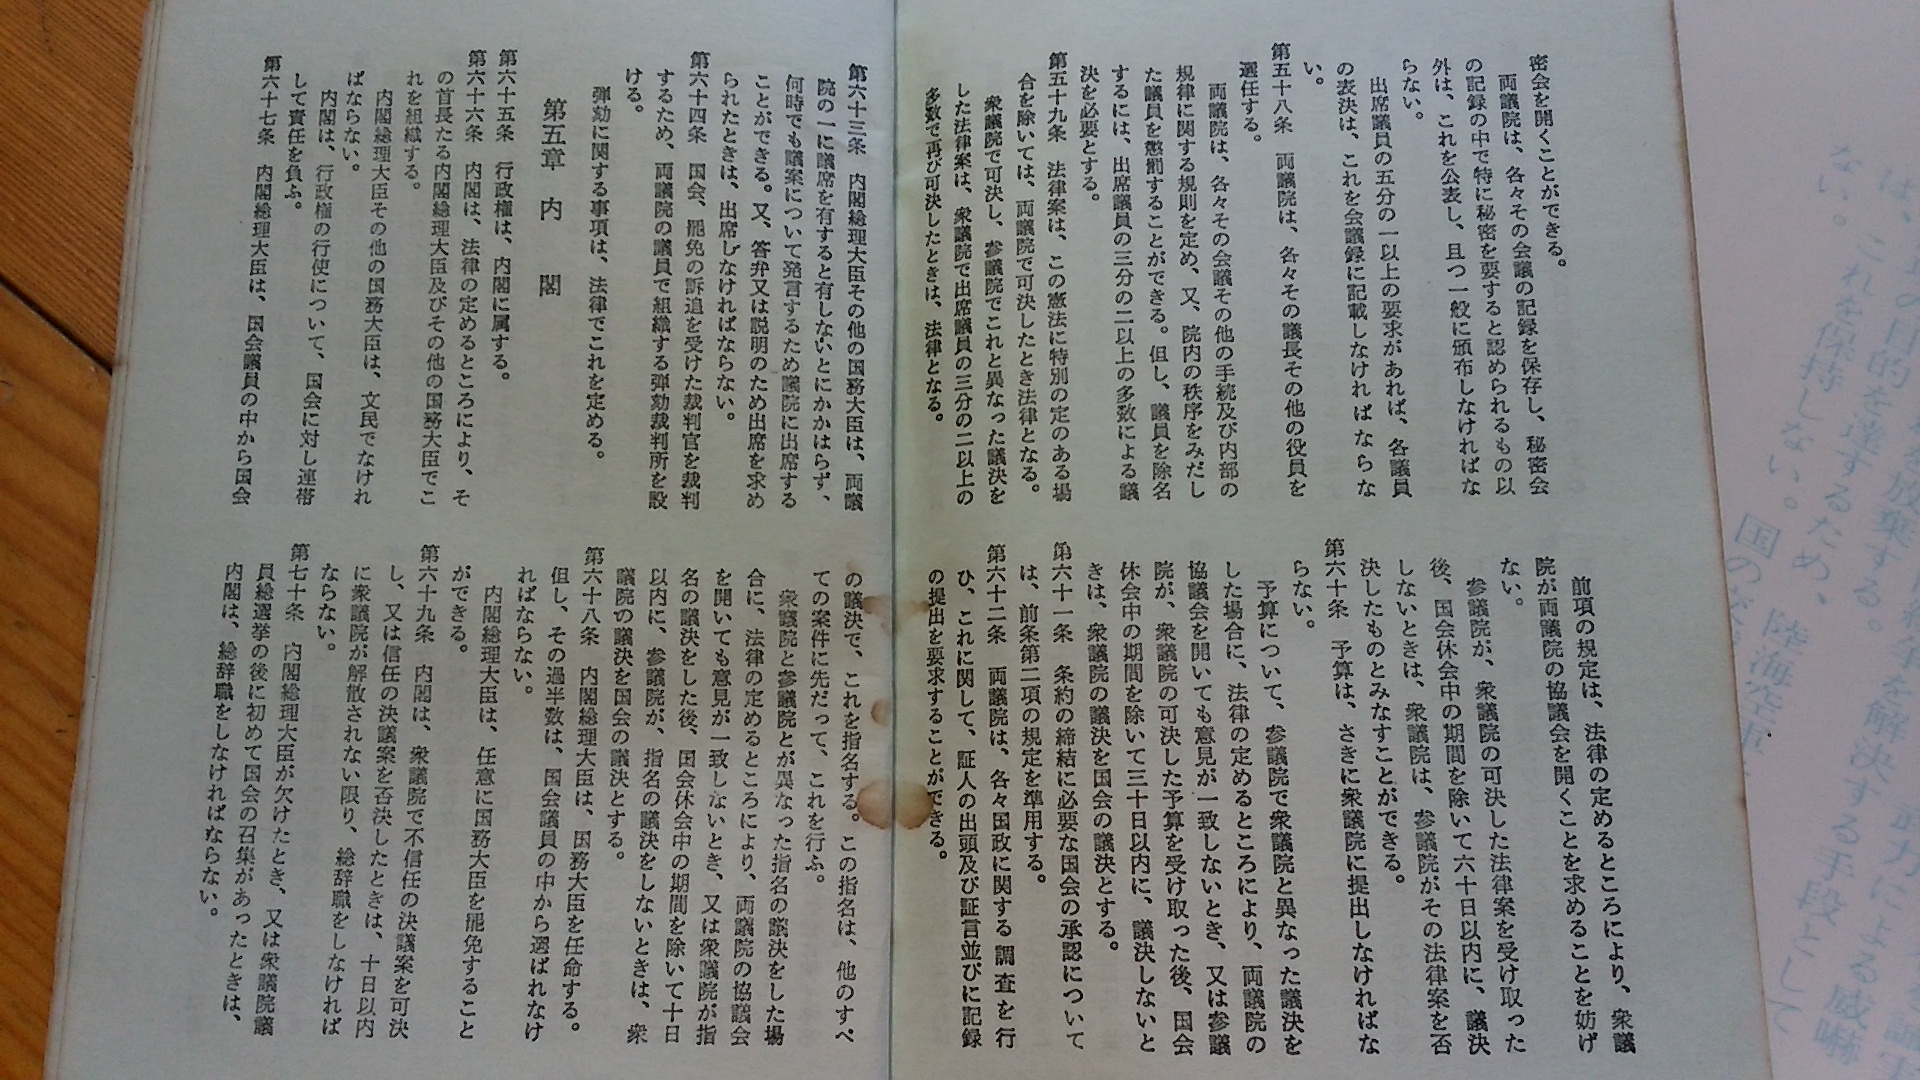 密会を開くことができる。
両議院は、各々その会議の記録を保存し、秘密会
の記録の中で特に秘密を要すると認められるもの以
外は、これを公表し、且つ一般に頒布しなければな
らない。
出席議員の五分の一以上の要求があれば、各議員
の表決は、これを会議録に記載しなければならな
い。
第五十八条 両議院は、各々その議長その他の役員を
選任する。
両議院は、各々その会議その他の手続及び内部の
規律に関する規則を定め、又、院内の秩序をみだし
た議員を懲罰することができる。但し、議員を除名
するには、出席議員の三分の二以上の多数による議
決を必要とする。
第五十九条 法律案は、この憲法に特別の定のある場
合を除いては、両議院で可決したとき法律となる。
衆議院で可決し、参議院でこれと異なった議決を
した法律案は、衆議院で出席議員の三分の二以上の
多数で再び可決したときは、法律となる。
前項の規定は、法律の定めるところにより、衆議
院が両議院の協議会を開くことを求めることを妨げ
ない。
参議院が、衆議院の可決した法律案を受け取った
後、国会休会中の期間を除いて六十日以内に、議決
しないときは、衆議院は、参議院がその法律案を否
決したものとみなすことができる。
第六十条 予算は、さきに衆議院に提出しなければな
らない。
予算について、参議院で衆議院と異なった議決を
した場合に、法律の定めるところにより、両議院の
協議会を開いても意見が一致しないとき、又は参議
院が、衆議院の可決した予算を受け取った後、国会
休会中の期間を除いて三十日以内に、議決しないと
きは、衆議院の議決を国会の議決とする。
第六十一条 条約の締結に必要な国会の承認について
は、前条第二項の規定を準用する。
第六十二条 両議院は、各々国政に関する調査を行
ひ、これに関して、証人の出頭及び証言並びに記録
の提出を要求することができる。
第六十三条 内閣総理大臣その他の国務大臣は、両議
院の一に議席を有すると有しないとにかかはらず、
何時でも議案について発言するため議院に出席する
ことができる。又、答弁又は説明のため出席を求め
られたときは、出席しなければならない。
第六十四条 国会、罷免の訴追を受けた裁判官を裁判
するため、両議院の議員で組織する弾劾裁判所を設
ける。
弾劾に関する事項は、法律でこれを定める。
第五章 内閣
第六十五条 行政権は、内閣に属する。
第六十六条 内閣は、法律の定めるところにより、そ
の首長たる内閣総理大臣及びその他の国務大臣でこ
れを組織する。
内閣総理大臣その他の国務大臣は、文民でなけれ
ばならない。
内閣は、行政権の行使について、国会に対し連帯
して責任を負ふ。
第六十七条 内閣総理大臣は、国会議員の中から国会
の議決で、これを指名する。この指名は、他のすべ
ての案件に先だって、これを行ふ。
衆議院と参議院とが異なった指名の議決をした場
合に、法律の定めるところにより、両議院の協議会
を開いても意見が一致しないとき、又は衆議院が指
名の議決をした後、国会休会中の期間を除いて十日
以内に、参議院が、指名の議決をしないときは、衆
議院の議決を国会の議決とする。
第六十八条 内閣総理大臣は、国務大臣を任命する。
但し、その過半数は、国会議員の中から選ばれなけ
ればならない。
内閣総理大臣は、任意に国務大臣を罷免すること
ができる。
第六十九条 内閣は、衆議院で不信任の決議案を可決
し、又は信任の決議案を否決したときは、十日以内
に衆議院が解散されない限り、総辞職をしなければ
ならない。
第七十条 内閣総理大臣が欠けたとき、又は衆議院議
員総選挙の後に初めて国会の召集があったときは、
内閣は、総辞職をしなければならない。
武力による威嚇
を解決する手段として
を放棄する。
の目的を達するため、陸海空軍
は、これを保持しない。国の
ない。